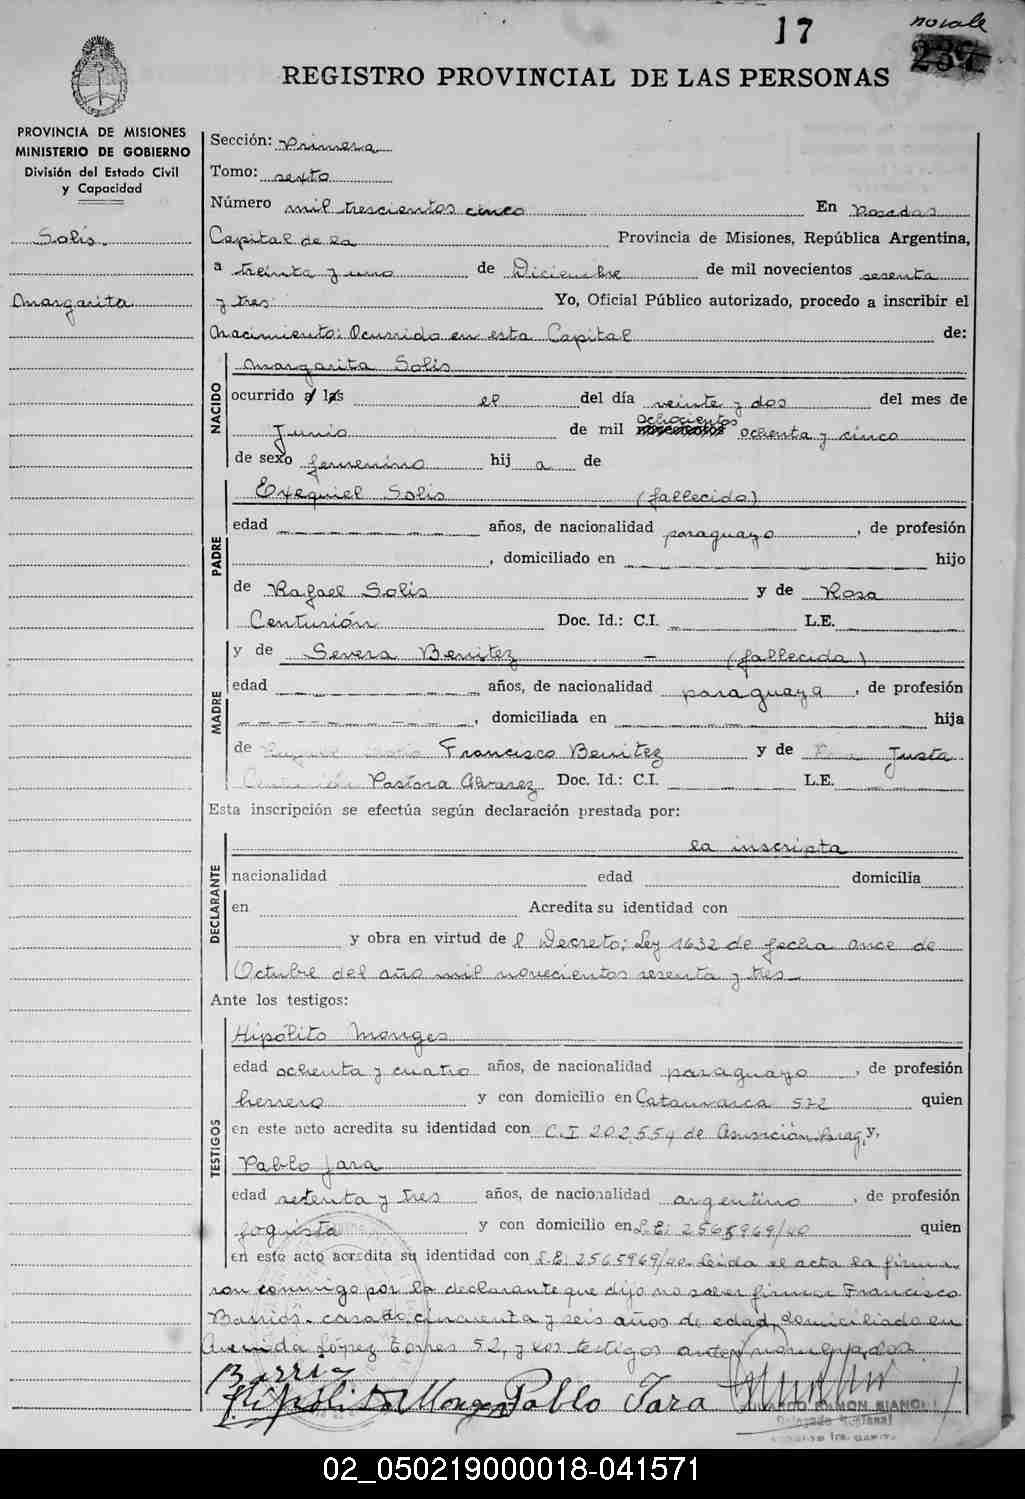 17
no vale
237
REGISTRO PROVINCIAL DE LAS PERSONAS
PROVINCIA DE MISIONES
MINISTERIO DE GOBIERNO
División del Estado Civil
y Capacidad
Solis.
Margarita
Sección: Primera
Tomo: sexto
Número mil trescientos cinco En Posadas
Capital de la Provincia de Misiones, República Argentina,
a treinta y uno de Diciembre de mil novecientos sesenta
y tres. Yo, Oficial Público autorizado, procedo a inscribir el
Nacimiento: Ocurrido en esta Capital de:
NACIDO
Margarita Solis
ocurrido a las el del día veinte y dos del mes de
Junio de mil ochocientos novecientos ochenta y cinco
de sexo femenino hij a de
PADRE
Exequiel Solis (fallecido)
edad años, de nacionalidad paraguayo, de profesión
, domiciliado en hijo
de Rafael Solis y de Rosa
Centurión Doc. Id.: C.I. L.E.
MADRE
y de Severa Benitez - (fallecida)
edad años, de nacionalidad paraguaya, de profesión
, domiciliada en hija
de Rafael Solis Francisco Benitez y de Rosa Justa
Centurión Pastora Alvarez Doc. Id.: C.I. L.E.
Esta inscripción se efectúa según declaración prestada por:
DECLARANTE
la inscripta
nacionalidad edad domicilia
en Acredita su identidad con
y obra en virtud de l Decreto; Ley 1632 de fecha once de
Octubre del año mil novecientos sesenta y tres
Ante los testigos:
TESTIGOS
Hipólito Monges
edad ochenta y cuatro años, de nacionalidad paraguayo, de profesión
herrero y con domicilio en Catamarca 522 quien
en este acto acredita su identidad con C.I 202.554 de Asunción Parag, y,
Pablo Jara
edad setenta y tres años, de nacionalidad argentino, de profesión
foguista y con domicilio en L.E: 2565969/40 quien
en este acto acredita su identidad con L.E: 2565969/40. Leida el acta la firma-
ron conmigo por la declarante que dijo no saber firmar Francisco
Barrios. casado, cincuenta y seis años de edad, domiciliado en
Avenida López Torres 52, y los testigos antes nombrados.
Hipólito Monges Pablo Jara
RAMON BIANCHI
Delegado
02_050219000018-041571